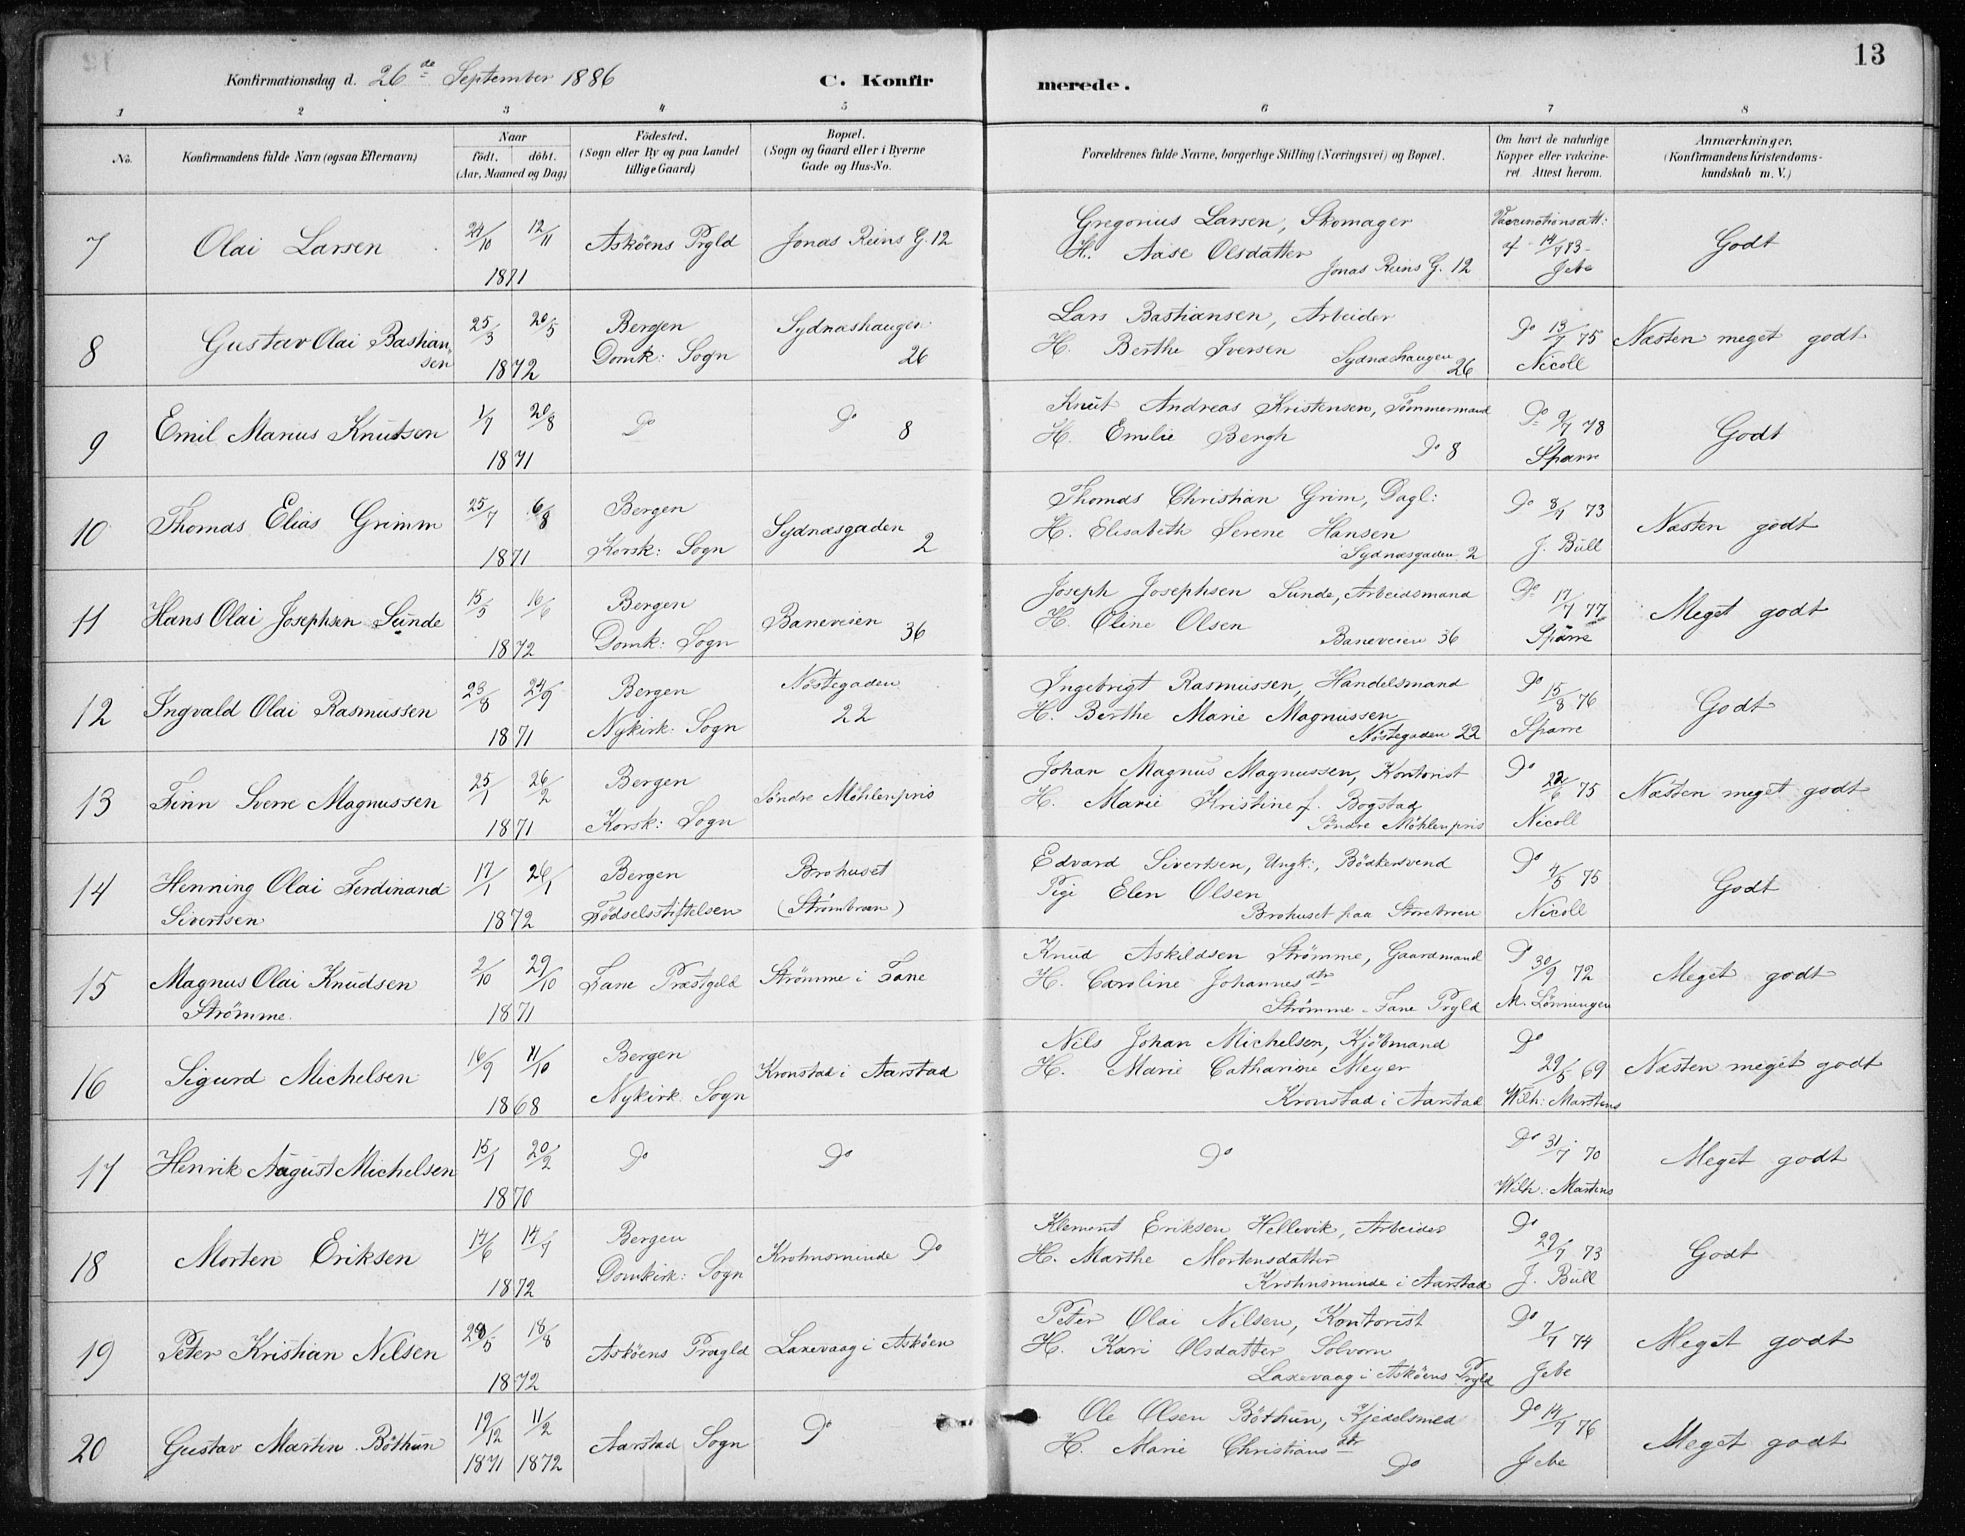 13
Konfirmationsdag d. 26de September 1886
C. Konfirmerede.
1 2 3 4 5 6 7 8
No. Konfirmandens fulde Navn (ogsaa Efternavn) Naar født. døbt. (Aar, Maaned og Dag) Fødested. (Sogn eller By og paa Landet tillige Gaard) Bopæl. (Sogn og Gaard eller i Byerne Gade og Hus-No. Forældrenes fulde Navne, borgerlige Stilling (Næringsvei) og Bopæl. Om havt de naturlige Kopper eller vakcineret. Attest herom. Anmærkninger. (Konfirmandens Kristendomskundskab m. V.)
7 Olai Larsen 24/10 12/11 1871 Askøens Prgld Jonas Reins G. 12
Gregorius Larsen, Skomager
H. Aase Olsdatter
Jonas Reins G. 12
Vaccinationsatt: af 14/7 73 Jebe
Godt
8 Gustav Olai Bastiansen 25/3 20/5 1872 Bergen Domk: Sogn Sydnæshaugen 26
Lars Bastiansen, Arbeider
H. Berthe Iversen
Sydnæshaugen 26
Do 13/7 75 Nicoll
Næsten meget godt
9 Emil Marius Knutson 1/7 20/8 1871 Do Do 8
Knut Andreas Kristensen, Tømmermand
H. Emilie Bergh
Do 8
Do 9/7 78 Sparre
Godt
10 Thomas Elias Grimm 25/7 6/8 1871 Bergen Korsk: Sogn Sydnæsgaden 2
Thomas Christian Grim, Dagl:
H. Elisabeth Serene Hansen
Sydnæsgaden 2
Do 8/7 73 J. Bull
Næsten godt
11 Hans Olai Josephsen Sunde 15/5 16/6 1872 Bergen Domk: Sogn Baneveien 36
Joseph Josephsen Sunde, Arbeidsmand
H. Oline Olsen
Baneveien 36
Do 17/7 77 Sparre
Meget godt
12 Ingvald Olai Rasmussen 23/8 24/9 1871 Bergen Nykirk: Sogn Nøstegaden 22
Ingebrigt Rasmussen, Handelsmand
H. Berthe Marie Magnussen
Nøstegaden 22
Do 15/8 76 Sparre
Godt
13 Finn Sverre Magnussen 25/1 26/2 1871 Bergen Korsk: Sogn Søndre Møhlenpris
Johan Magnus Magnussen, Kontorist
H. Marie Kristine f. Bogstad
Søndre Møhlenpris
Do 22/6 75 Nicoll
Næsten meget godt
14 Henning Olai Ferdinand Sivertsen 17/1 26/1 1872 Bergen Fødselsstiftelsen Brohuset (Strømbroen)
Edvard Sivertsen, Ungk:, Bødkersvend
Pige Elen Olsen
Brohuset paa Storebroen
Do 4/5 75 Nicoll
Godt
15 Magnus Olai Knudsen Strømme. 2/10 29/10 1871 Fane Præstgeld Strømme i Fane
Knud Askildsen Strømme, Gaardmand
H. Caroline Johannesdtr
Strømme - Fane Prgld
Do 30/9 72 M. Lønningen
Meget godt
16 Sigurd Michelsen 16/9 11/10 1868 Bergen Nykirk: Sogn Kronstad i Aarstad
Nils Johan Michelsen, Kjøbmand
H. Marie Catharine Meyer
Kronstad i Aarstad
Do 29/5 69 Wilh: Martens
Næsten meget godt
17 Henrik August Michelsen 15/1 20/2 1870 Do Do
Do
Do 31/7 70 Wilh: Martens
Meget godt
18 Morten Eriksen 14/6 14/7 1872 Bergen Domkirk: Sogn Krohnsminde Do
Klement Eriksen Hellevik, Arbeider
H. Marthe Mortensdatter
Krohnsminde i Aarstad
Do 29/7 73 J. Bull
Godt
19 Peter Kristian Nilsen 28/5 18/8 1872 Askøens Prægld Laxevaag i Askøen
Peter Olai Nilsen, Kontorist
H. Kari Olsdatter Solvorn
Laxevaag i Askøens Prgld
Do 7/7 74 Jebe
Meget godt
20 Gustav Martin Bøthun 19/12 1871 11/2 1872 Aarstad Sogn Do
Ole Olsen Bøthun, Kjedelsmed
H. Marie Christiansdtr
Do
Do 14/7 76 Jebe
Meget godt